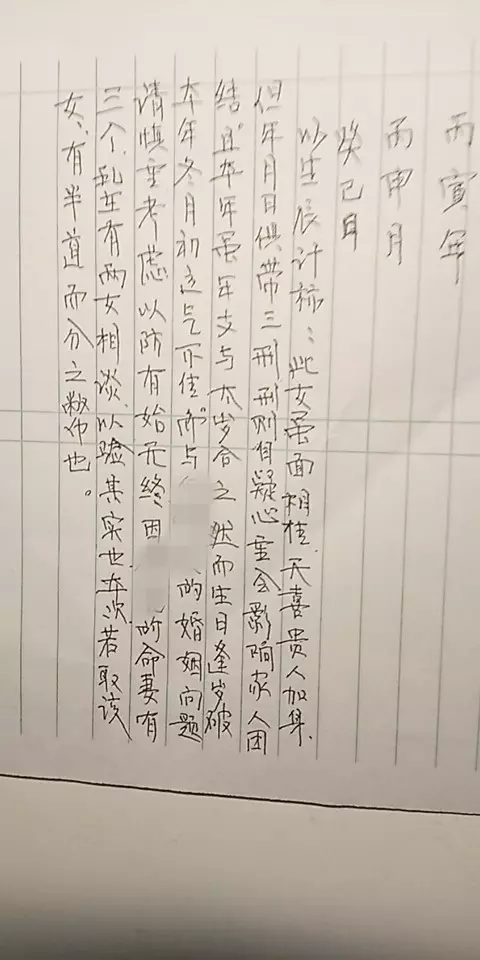 丙寅年
丙申月
癸巳日
以生辰计称：此女虽面相佳，天喜贵人加集，
但年月日俱带三刑刑则有疑心重会影响家人团
结且本年虽年支与太岁合之然而生日逢岁破
本年冬月初运气不佳即与的婚姻问题
请慎重考虑以防有始无终因所命妻有
三个，现在有两女相谈以验其实也本次若取该
女，有半道而分之弊也。